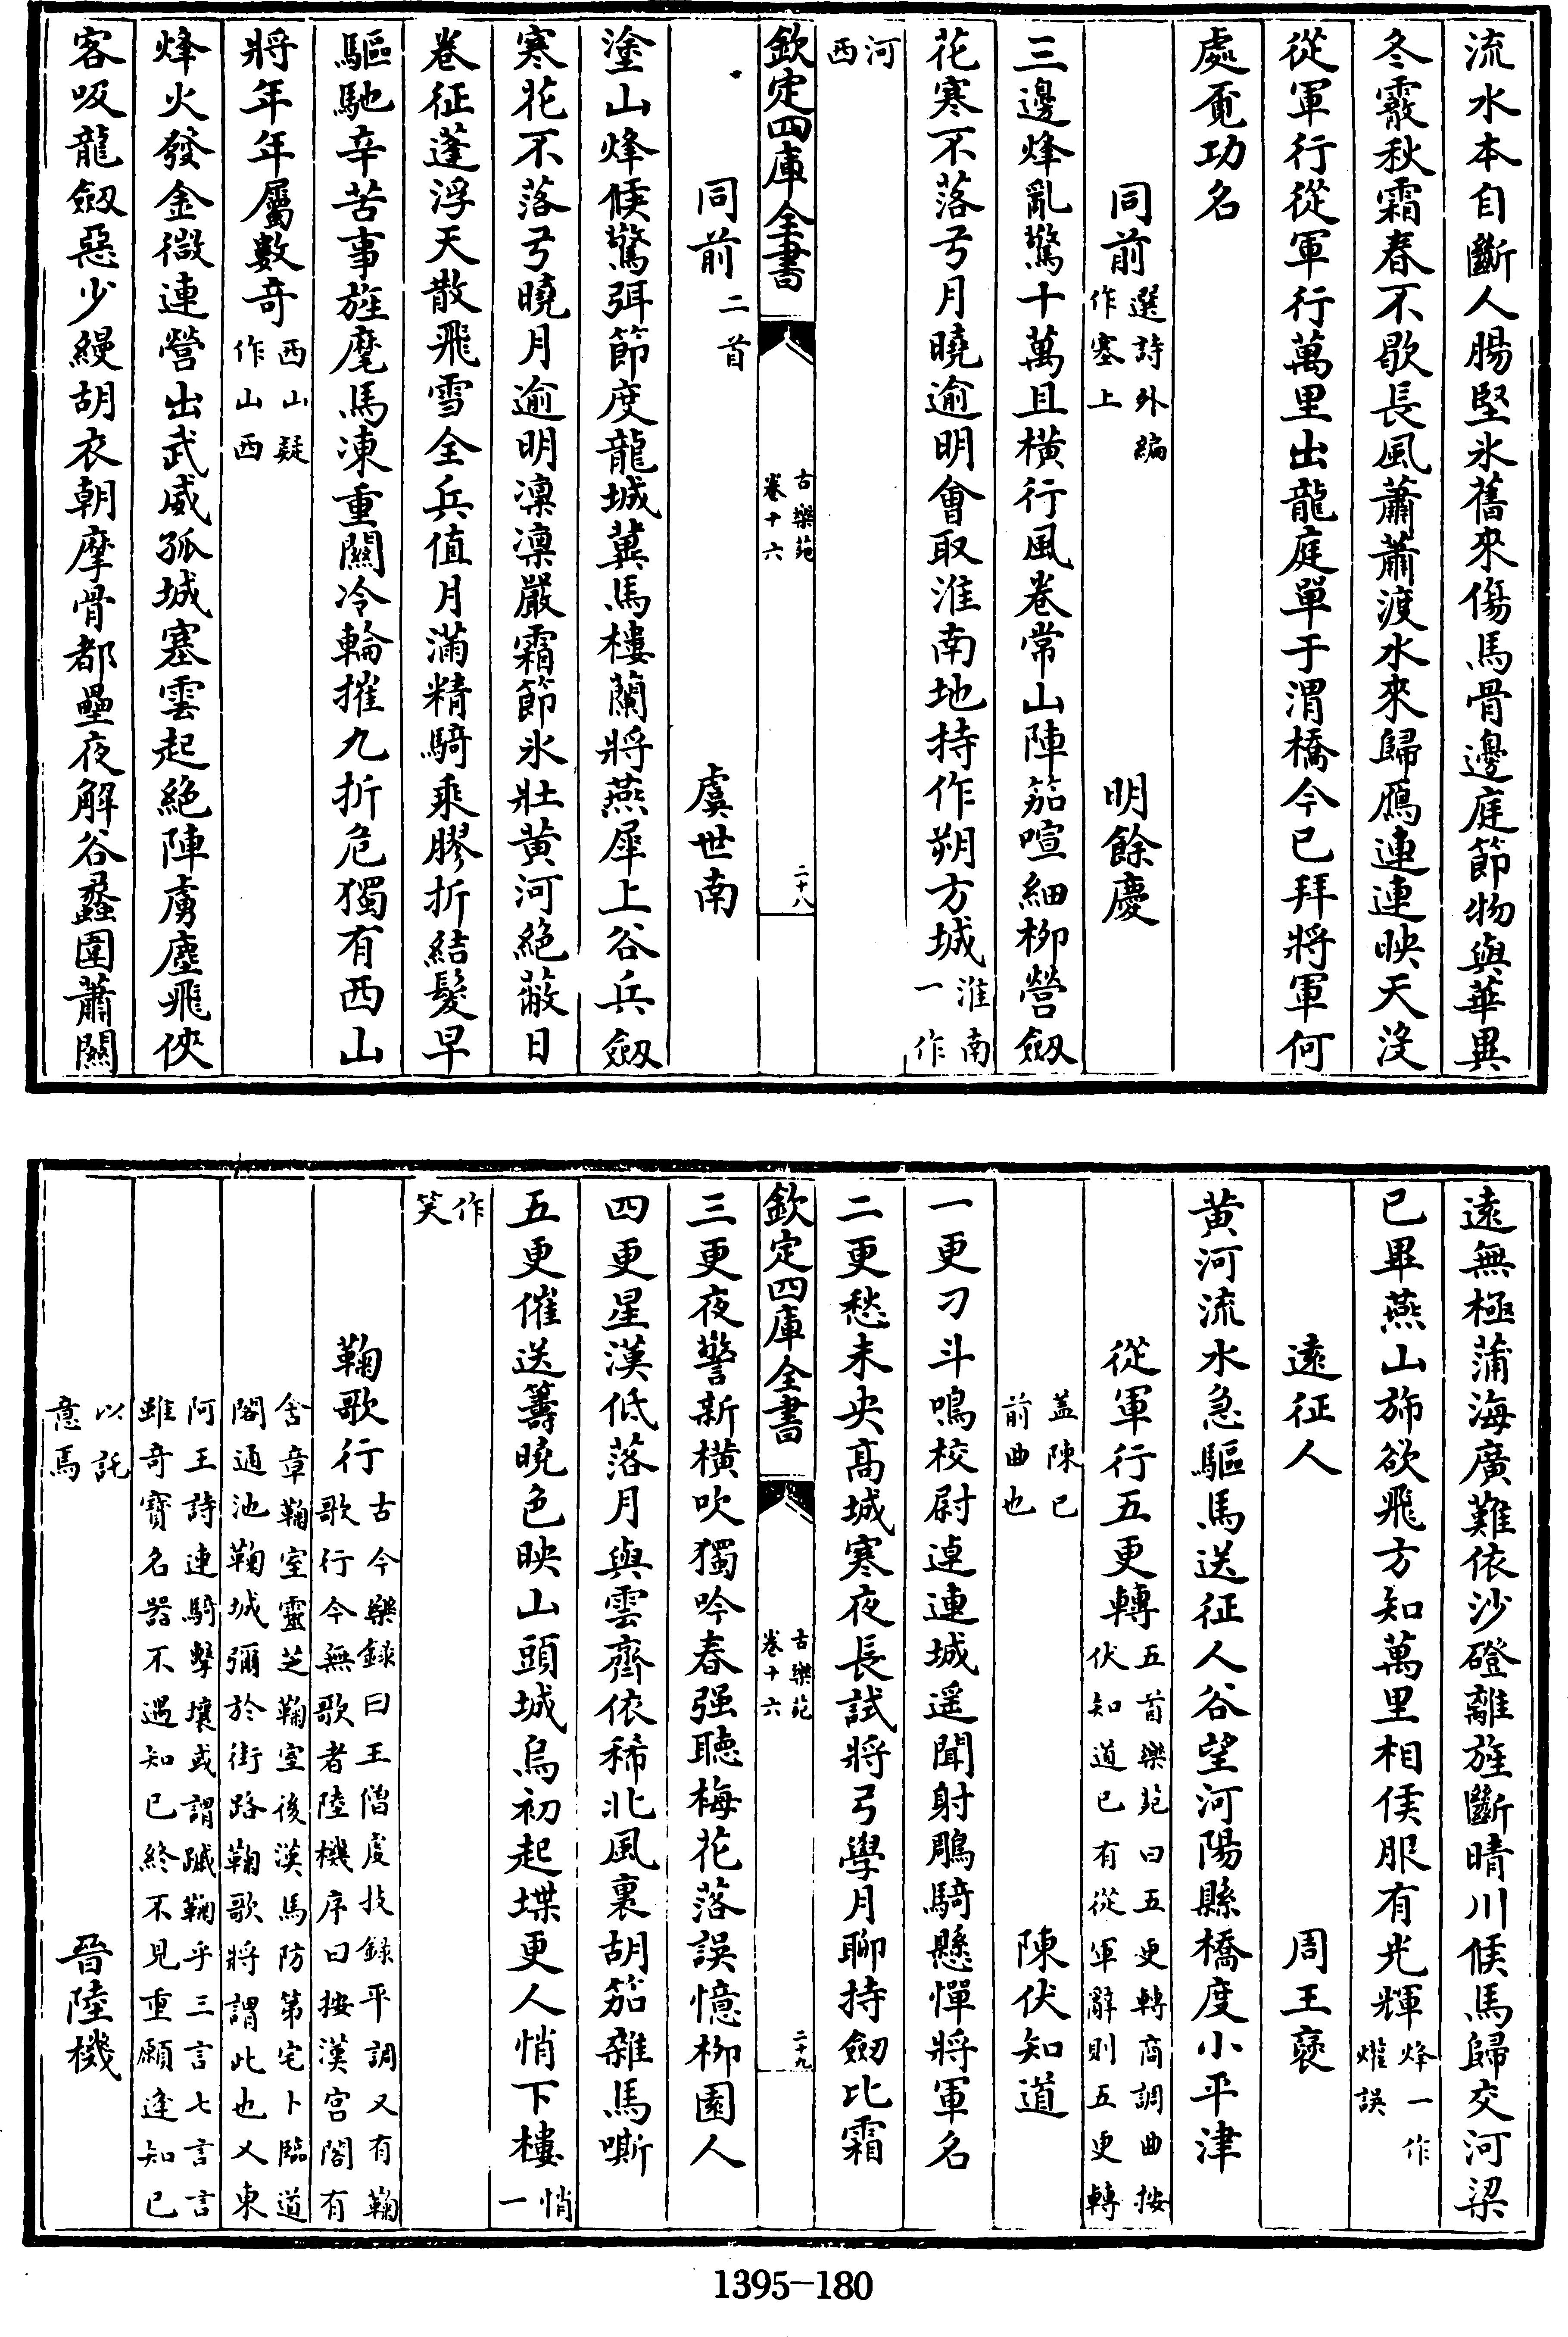 流水本自斷人腸堅氷舊來傷馬骨邊庭節物與華異
冬霰秋霜春不歇長風蕭蕭渡水來歸鴈連連映天没
從軍行從軍行萬里出龍庭單于渭橋今已拜將軍何
處覔功名
同前選詩外編作塞上 明餘慶
三邊烽亂驚十萬且橫行風卷常山陣笳喧細栁營劔
花寒不落弓月曉逾明會取淮南地持作朔方城淮南一作
河西
欽定四庫全書 古樂苑卷十六 二十八
同前二首 虞世南
塗山烽候驚弭節度龍城冀馬樓蘭將燕犀上谷兵劔
寒花不落弓曉月逾明凜凜嚴霜節氷壯黄河絶蔽日
卷征蓬浮天散飛雪全兵值月滿精騎乘膠折結髮早
驅馳辛苦事旌麾馬凍重關冷輪摧九折危獨有西山
將年年屬數奇西山疑作山西
烽火發金微連營出武威孤城塞雲起絶陣虜塵飛俠
客吸龍劔惡少縵胡衣朝摩骨都壘夜解谷蠡圍蕭關
遠無極蒲海廣難依沙磴離旌斷晴川候馬歸交河梁
已畢燕山斾欲飛方知萬里相侯服有光輝烽一作爟誤
遠征人 周王襃
黄河流水急驅馬送征人谷望河陽縣橋度小平津
從軍行五更轉五首樂苑曰五更轉商調曲按伏知道已有從軍辭則五更轉
蓋陳已前曲也 陳伏知道
一更刁斗鳴校尉逴連城遥聞射鵰騎懸憚將軍名
二更愁未央髙城寒夜長試將弓學月聊持劔比霜
三更夜警新橫吹獨吟春强聽梅花落誤憶栁園人
四更星漢低落月與雲齊依稀北風裏胡笳雜馬嘶
五更催送籌曉色映山頭城烏初起堞更人悄下樓悄一
作笑
鞠歌行古今樂録曰王僧虔技録平調又有鞠歌行今無歌者陸機序曰按漢宫閣有
含章鞠室靈芝鞠室後漢馬防第宅卜臨道閣通池鞠城彌於街路鞠歌將謂此也又東
阿王詩連騎擊壤或謂蹴鞠乎三言七言言雖奇寶名器不遇知已終不見重願逢知已
以託意焉 晉陸機
欽定四庫全書 古樂苑卷十六 二十九
1395-180